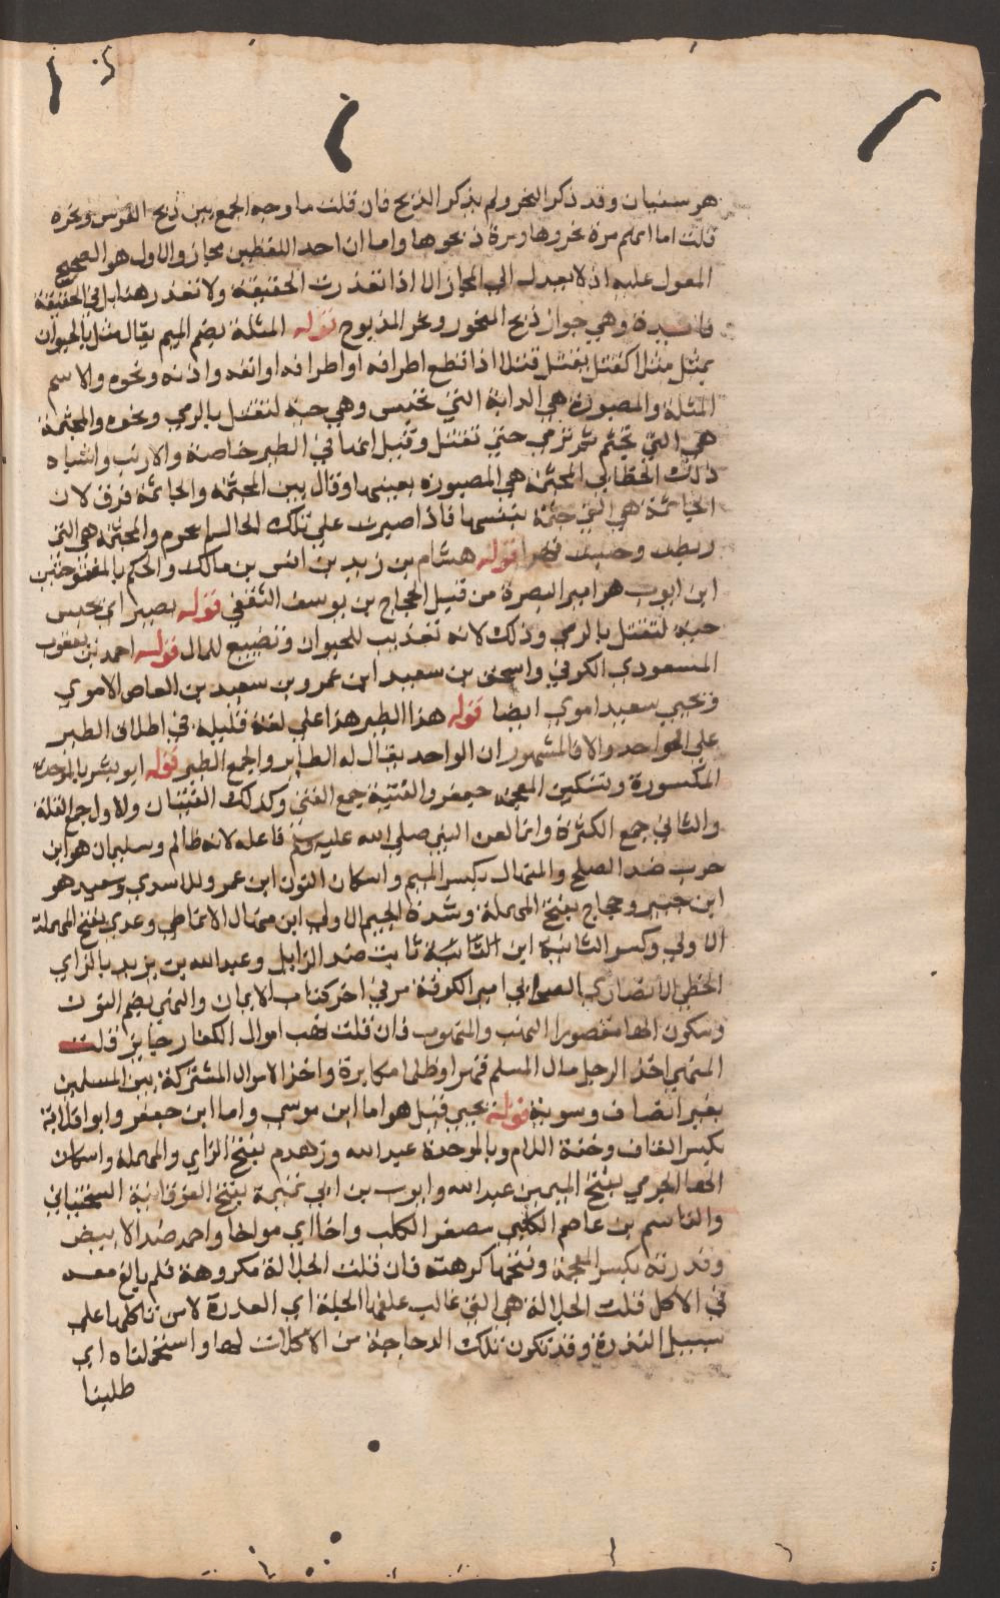 هو سفيان وقد ذكر النحر ولم يذكر الذبح فان قلت ما وجه الجمع بين ذبح الفرس ونحره
قلت اما انهم مرة نحروها ومرة ذبحوها واما ان احد اللفظين مجاز والاول هو الصحيح
المعول عليه اذ لا يعدل الي المجاز الا اذا تعذرت الحقيقة ولا تعذر هنا بل في الحقيقة
فائدة وهي جواز ذبح المنحور ونحر المذبوح قوله المثلة بضم الميم يقال مثل بالحيوان
يمثل مثلا كقتل يقتل قتلا اذا قطع اطرافه او اطرافه او انفه واذنه ونحوه والاسم
المثلة والمصبورة هي الدابة التي تحبس وهي حية لتقتل بالرمي ونحوه والمجثمة
هي التي تجثم ثم ترمي حتي تقتل وقيل انها في الطير خاصة والارنب واشباه
ذلك الخطابي المجثمة هي المصبورة بعينها وقال بين المجثمة والجاثمة فرق لان
الجاثمة هي التي جثمت بنفسها فاذا صيرت علي تلك الحال لم تحرم والمجثمة هي التي
ربطت وحبست قهرا قوله هشام بن زيد بن انس بن مالك والحكم بالمفتوحتين
ابن ايوب هو امير البصرة من قبل الحجاج بن يوسف الثقفي قوله بصبر اي يحبس
حية لتقتل بالرمي وذلك لانه تعذيب للحيوان وتضييع للمال قوله احمد بن يعقوب
المسعودي الكوفي واسحق بن سعيد ابن عمرو بن سعيد بن العاص الاموي
ويحيي سعيد اموي ايضا قوله هذا الطير هذا علي لغة قليلة في اطلاق الطير
علي الواحد والا فالمشهور ان الواحد يقال له الطاير والجمع الطير قوله ابو بشر بالموحدة
المكسورة وتسكين المعجمة جعفر والفتية جمع الفتي وكذلك الفتيان والاول جمع القلة
والثاني جمع الكثرة وانما لعن النبي صلي الله عليه وسلم فاعله لانه ظالم وسليمان هو ابن
حرب ضد الصلح والمنهال بكسر الميم واسكان النون ابن عمرو للاسدي وسعيد هو
ابن جبير وحجاج بفتح المهملة وشدة الجيم الاولي ابن منهال الانماطي وعدي بفتح المهملة
الاولي وكسر الثانية ابن الثانية ثابت ضد الزايل وعبد الله بن يزيد بالزاي
الخطمي الانصاري الصحابي امير الكوفة مر في اخر كتاب الايمان والنهبي بضم النون
وسكون الها مقصورا النهب والمنهوب فان قلت نهب اموال الكفار جايز قلت
المنهي اخذ الرجل مال المسلم قهرا وظلما مكابرة واخذ الاموال المشتركة بين المسلمين
بغير انصاف وسوية قوله يحيي قيل هو اما ابن موسي واما ابن جعفر وابو قلابة
بكسر القاف وخفة اللام وبالموحدة عبد الله وزهدم بفتح الزاي والمهملة واسكان
الها الجرمي بفتح الجيم بن عبد الله وايوب بن ابي تميمة بفتح الفوقانية السختياني
والقاسم بن عاصم الكليبي مصغر الكلب واخا اي مواخا واحمر ضد الابيض
وقذرته بكسر المعجمة وفتحها كرهته فان قلت الجلالة مكروهة فلم بالغ معه
في الاكل قلت الجلالة هي التي غالب علفها الجلة اي العذرة لا من تاكلها علي
سبيل الندرة وقد تكون تلك الدجاجة من الاكلات لها واستحملناه اي
طلبنا